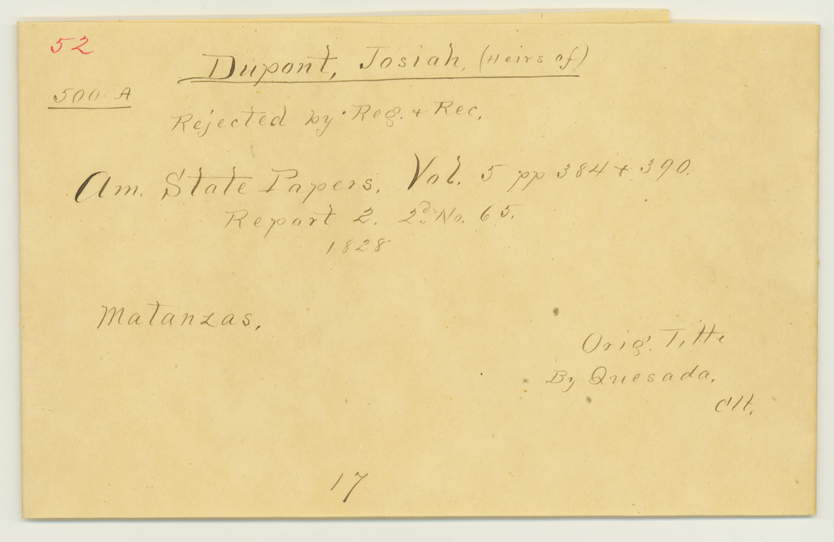 52
Dupont, Josiah, (Heirs of)
500 A
Rejected by Reg. + Rec.
Am. State Papers. Vol. 5 pp 384 + 390.
Report 2. 2d. No. 65.
1828
Matanzas.
Orig. Title
By Quesada.
17